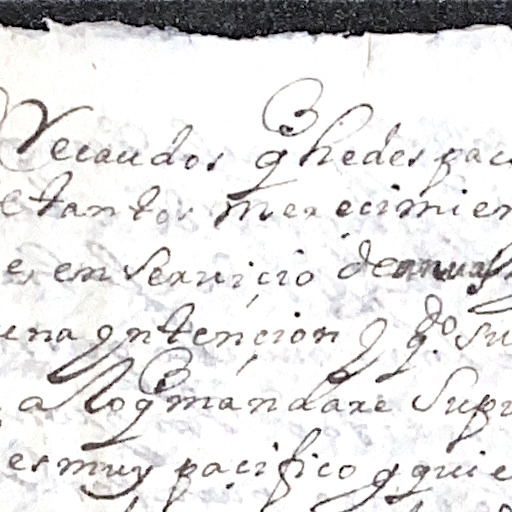 Recaudos q he despac
tantos merecimien
es en servicio de
ena yntençion y qdo su
a lo q mandare Supr
es muy paçifico y quie